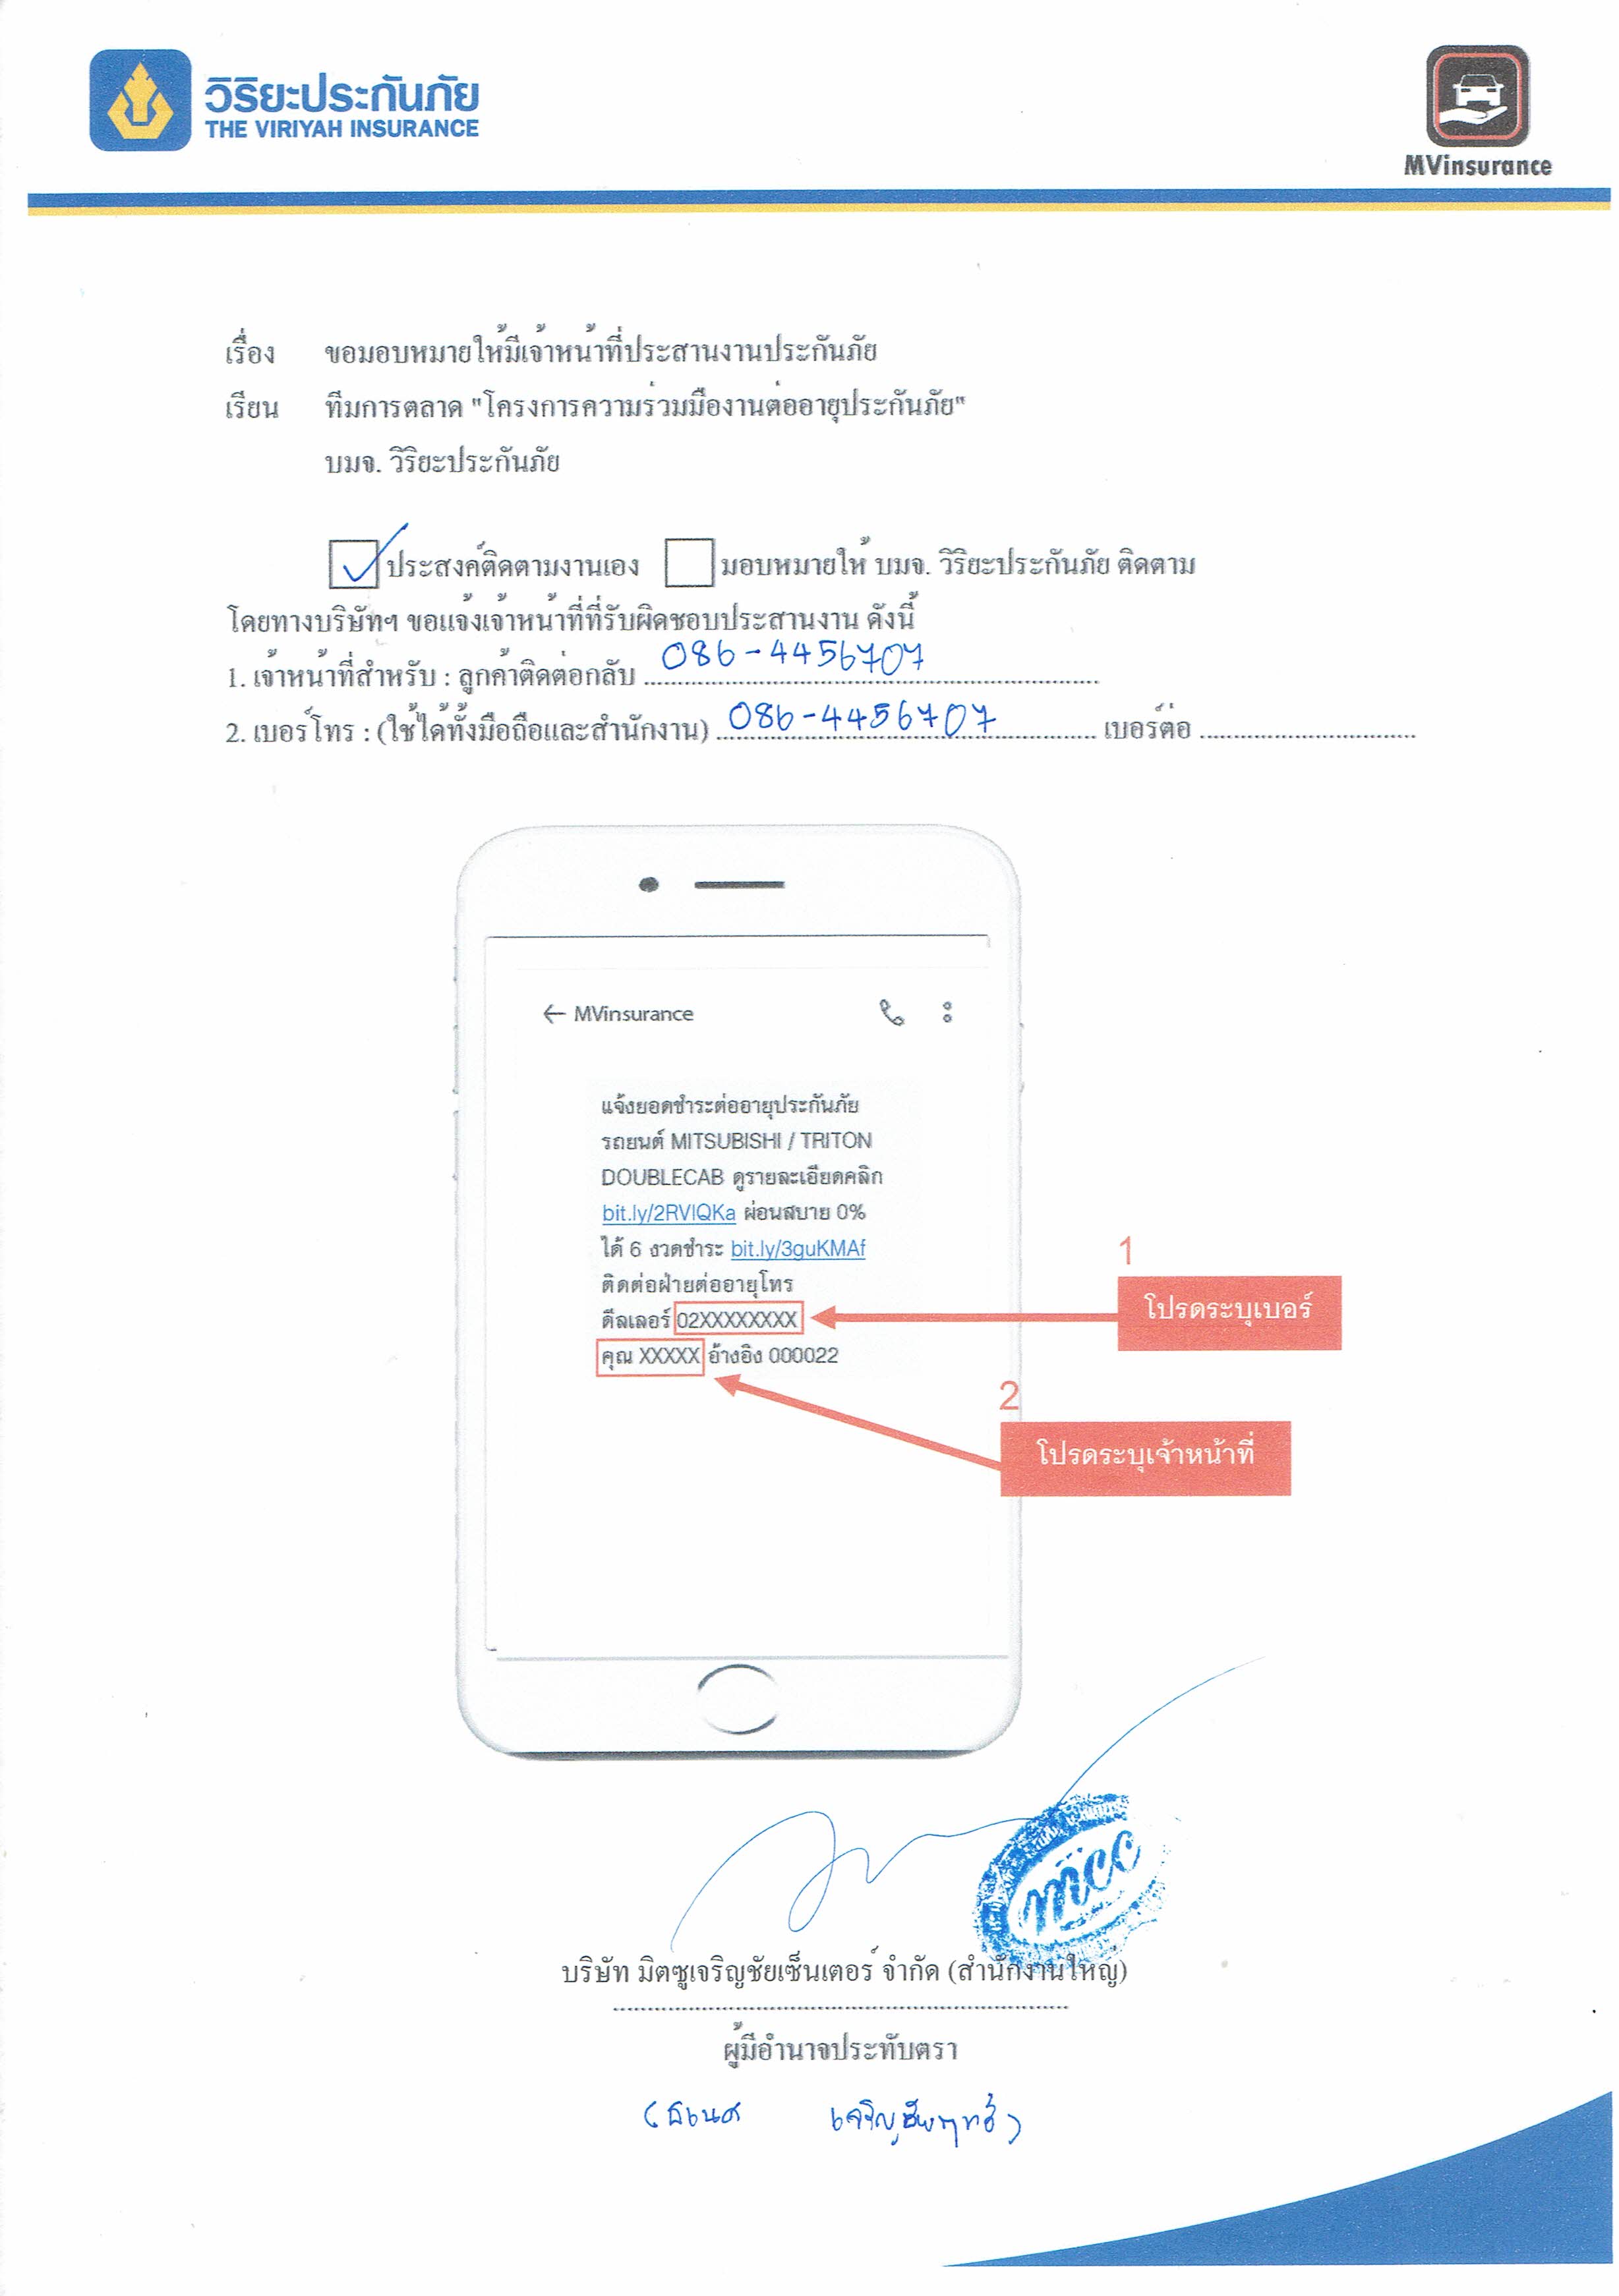 วิริยะประกันภัย
THE VIRIYAH INSURANCE
MVinsurance
เรื่อง ขอมอบหมายให้มีเจ้าหน้าที่ประสานงานประกันภัย
เรียน ทีมการตลาด "โครงการความร่วมมืองานต่ออายุประกันภัย"
บมจ. วิริยะประกันภัย
ประสงค์ติดตามงานเอง มอบหมายให้ บมจ. วิริยะประกันภัย ติดตาม
โดยทางบริษัทฯ ขอแจ้งเจ้าหน้าที่ที่รับผิดชอบประสานงาน ดังนี้
1. เจ้าหน้าที่สำหรับ : ลูกค้าติดต่อกลับ 086-4456707
2. เบอร์โทร : (ใช้ได้ทั้งมือถือและสำนักงาน) 086-4456707 เบอร์ต่อ
← MVinsurance
แจ้งยอดชำระต่ออายุประกันภัย
รถยนต์ MITSUBISHI / TRITON
DOUBLECAB ดูรายละเอียดคลิก
bit.ly/2RVlQKa ผ่อนสบาย 0%
ได้ 6 งวดชำระ bit.ly/3guKMAf
ติดต่อฝ่ายต่ออายุโทร
ดีลเลอร์ 02XXXXXXXX
คุณ XXXXX อ้างอิง 000022
1
โปรดระบุเบอร์
2
โปรดระบุเจ้าหน้าที่
mcc
บริษัท มิตซูเจริญชัยเซ็นเตอร์ จำกัด (สำนักงานใหญ่)
ผู้มีอำนาจประทับตรา
(ธเนศ